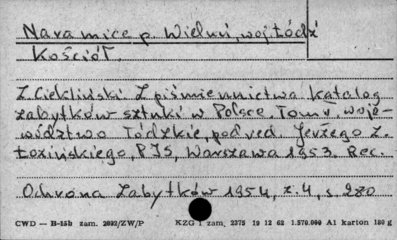 Naramice p. Wieluń, woj. Łódź
Kościół.
Z. Ciekliński Z piśmiennictwa Katalog
zabytków sztuki w Polsce. Tom II woje-
wództwo łódzkie, pod red. Jerzego Z.
Łozińskiego, PIS, Warszawa 1953. Rec.
Ochrona Zabytków 1954, z. 4, s. 280
CWD — B-15b zam. 2092/ZW/P KZG 1 zam. 2375 19 12 62 1.570.000 A1 karton 180 g